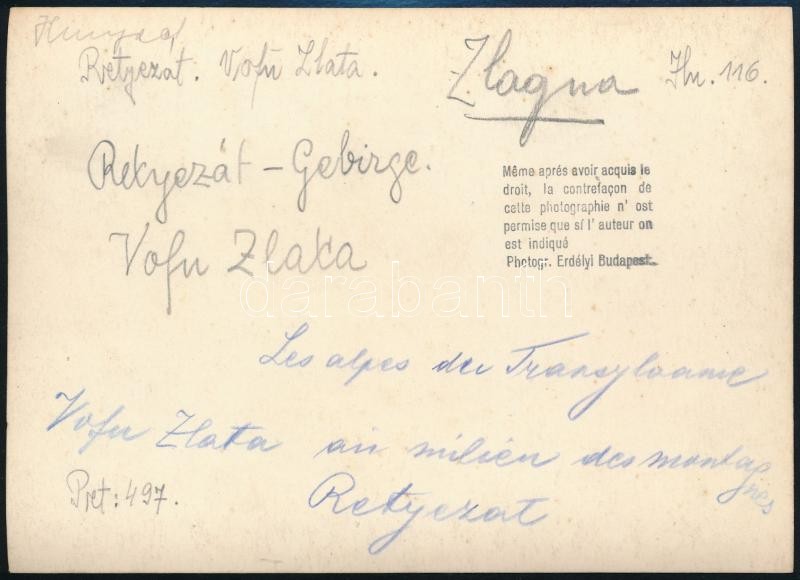 Hunyad
Retyezat. Vofu Zlata.
Zlagna
Hu. 116.
Retyezát - Gebirge.
Vofu Zlata
Même aprés avoir acquis le
droit, la contrefaçon de
cette photographie n' ost
permise que sí l' auteur on
est indiqué
Photogr. Erdélyi Budapest.
darabanth
Les alpes de Transylvanie
Vofu Zlata au milieu des montagnes
Retyezat
Pret: 497.